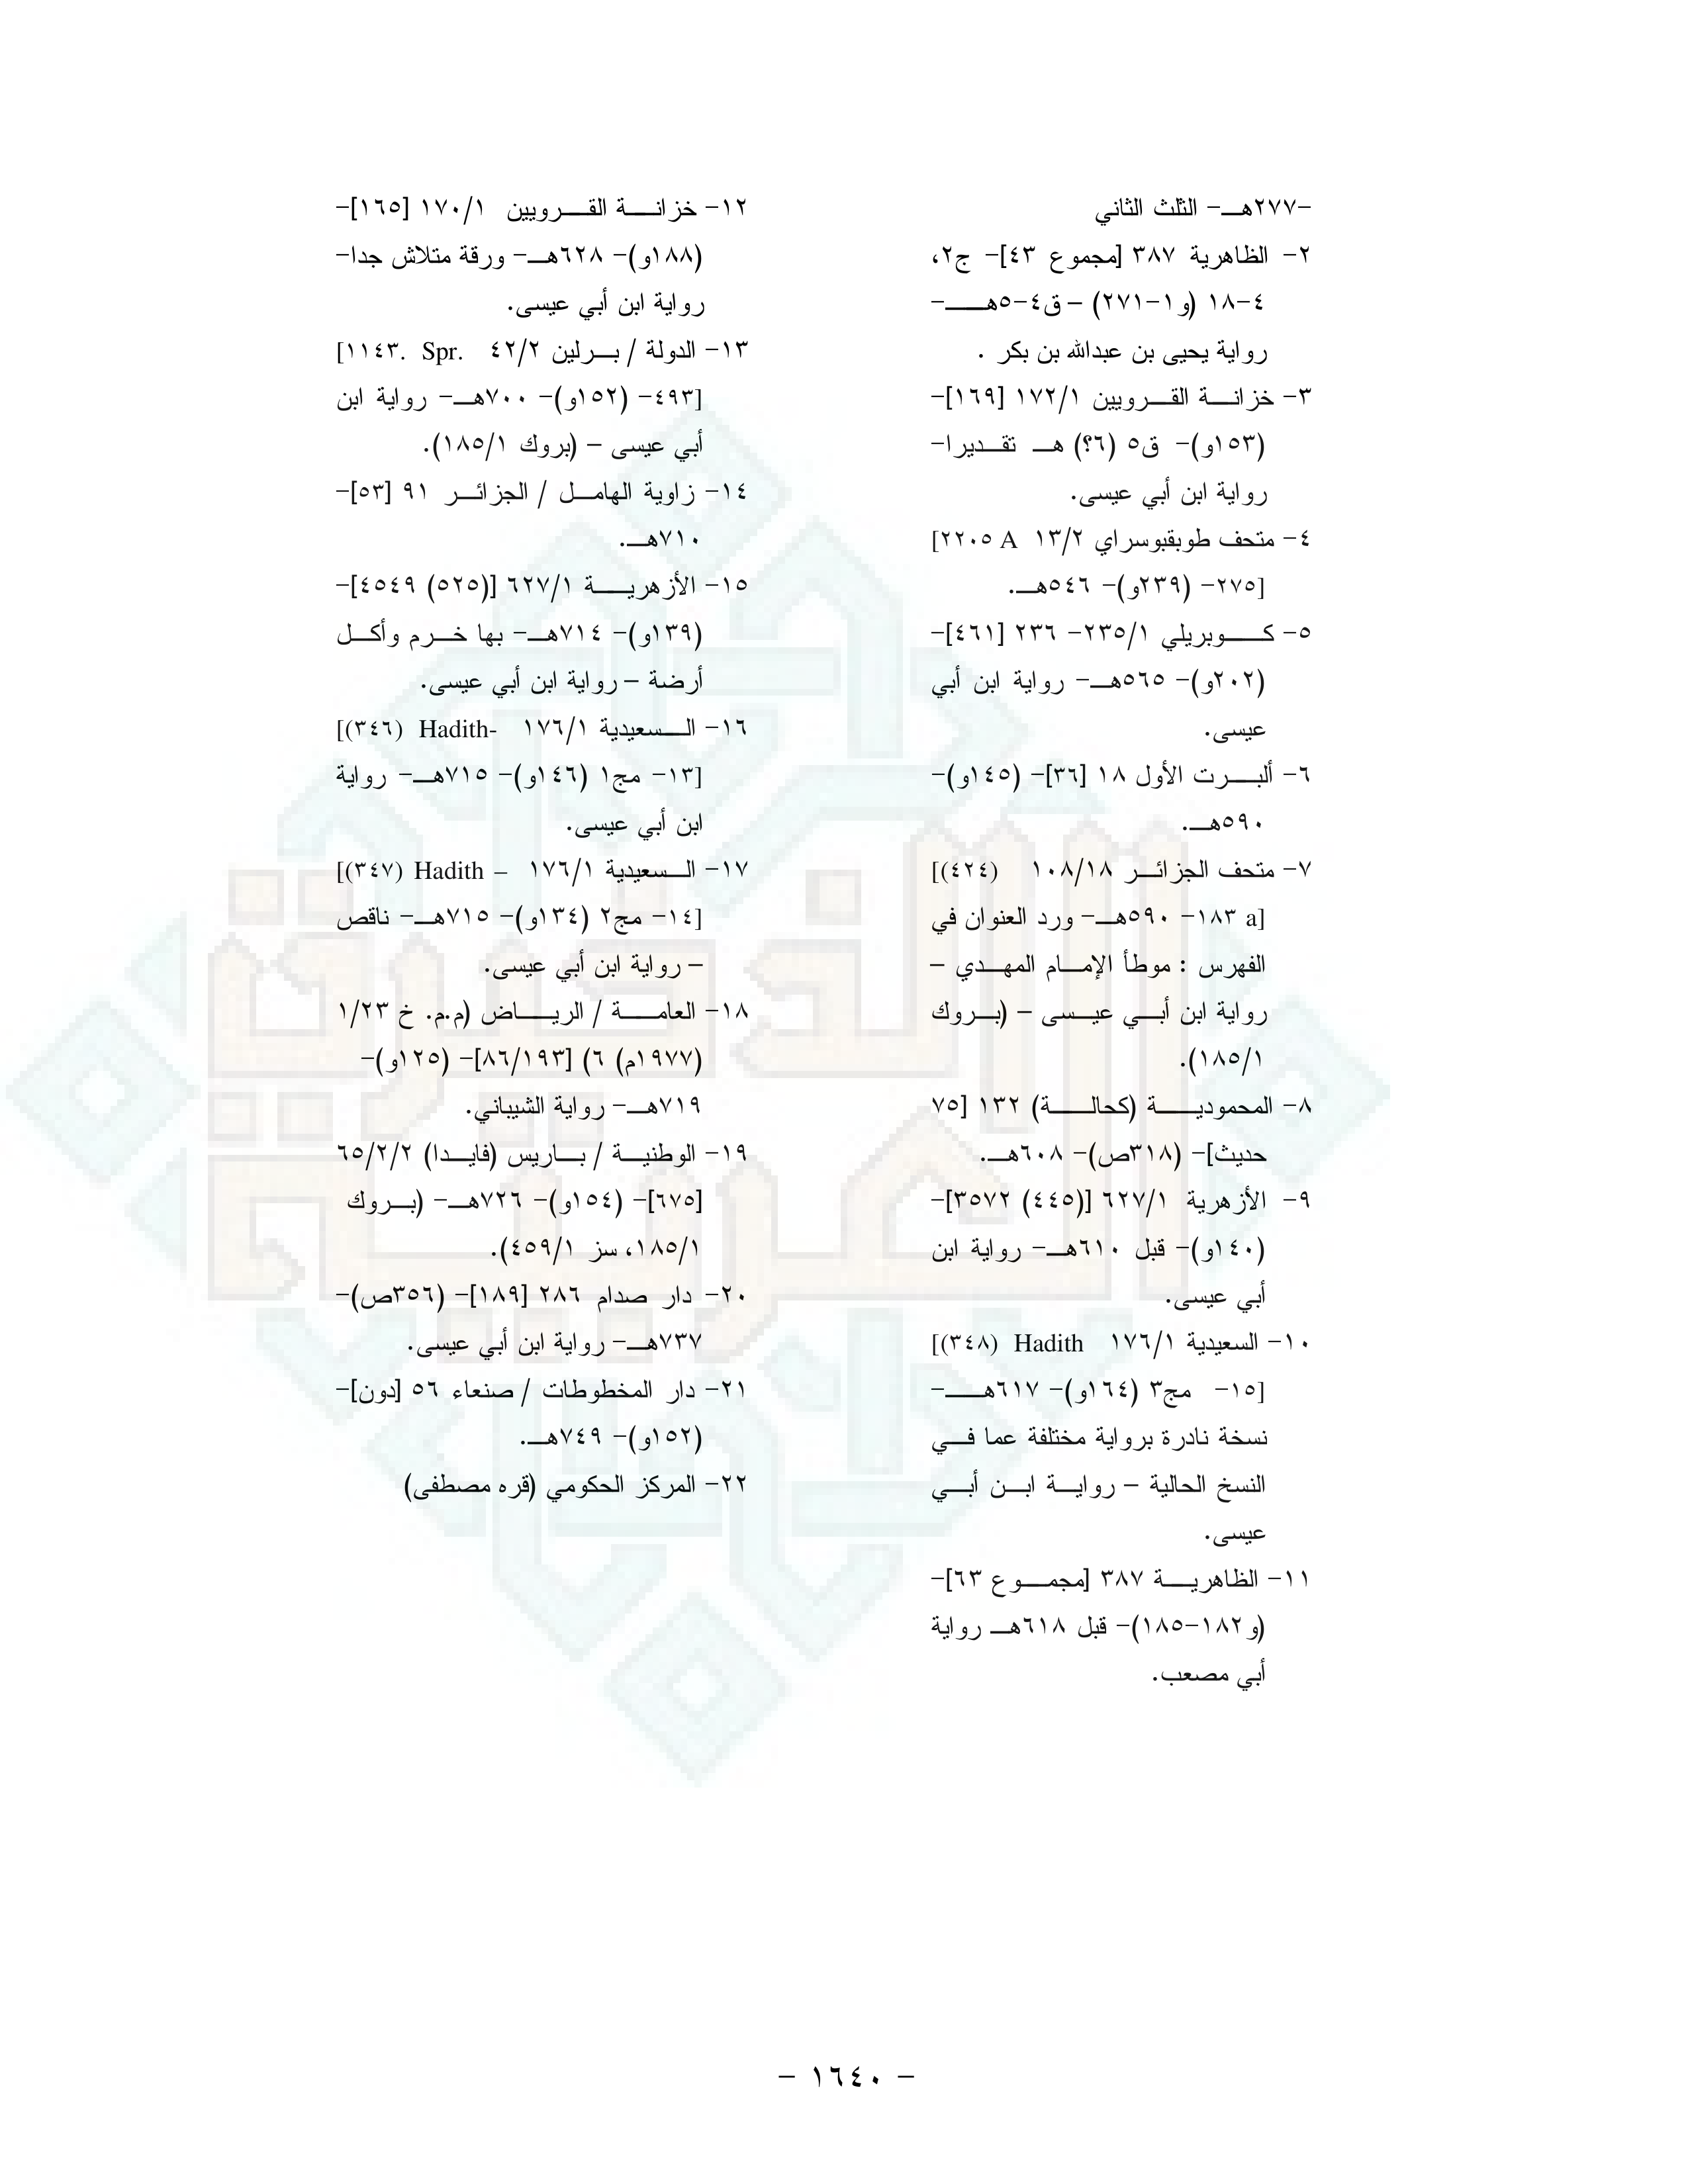 -٢٧٧هـ- الثلث الثاني
٢- الظاهرية ٣٨٧ [مجموع ٤٣]- ج٢،
٤-١٨ (و١-٢٧١) – ق٤-٥هـ-
رواية يحيى بن عبدالله بن بكر .
٣- خزانة القرويين ١٧٢/١ [١٦٩]-
(١٥٣و)- ق٥ (٦؟) هـ تقديرا-
رواية ابن أبي عيسى.
٤- متحف طوبقبوسراي ١٣/٢ A ٢٢٠٥]
[٢٧٥- (٢٣٩و)- ٥٤٦هـ.
٥- كوبريلي ٢٣٥/١- ٢٣٦ [٤٦١]-
(٢٠٢و)- ٥٦٥هـ- رواية ابن أبي
عيسى.
٦- ألبرت الأول ١٨ [٣٦]- (١٤٥و)-
٥٩٠هـ.
٧- متحف الجزائر ١٠٨/١٨ (٤٢٤)]
[a ١٨٣- ٥٩٠هـ- ورد العنوان في
الفهرس : موطأ الإمام المهدي –
رواية ابن أبي عيسى – (بروك
١٨٥/١).
٨- المحمودية (كحالة) ١٣٢ [٧٥
حديث]- (٣١٨ص)- ٦٠٨هـ.
٩- الأزهرية ٦٢٧/١ [(٤٤٥) ٣٥٧٢]-
(١٤٠و)- قبل ٦١٠هـ- رواية ابن
أبي عيسى.
١٠- السعيدية ١٧٦/١ Hadith (٣٤٨)]
[١٥- مج٣ (١٦٤و)- ٦١٧هـ-
نسخة نادرة برواية مختلفة عما في
النسخ الحالية – رواية ابن أبي
عيسى.
١١- الظاهرية ٣٨٧ [مجموع ٦٣]-
(و١٨٢-١٨٥)- قبل ٦١٨هـ رواية
أبي مصعب.
١٢- خزانة القرويين ١٧٠/١ [١٦٥]-
(١٨٨و)- ٦٢٨هـ- ورقة متلاش جدا-
رواية ابن أبي عيسى.
١٣- الدولة / برلين ٤٢/٢ Spr. ١١٤٣.]
[٤٩٣- (١٥٢و)- ٧٠٠هـ- رواية ابن
أبي عيسى – (بروك ١٨٥/١).
١٤- زاوية الهامل / الجزائر ٩١ [٥٣]-
٧١٠هـ.
١٥- الأزهرية ٦٢٧/١ [(٥٢٥) ٤٥٤٩]-
(١٣٩و)- ٧١٤هـ- بها خرم وأكل
أرضة – رواية ابن أبي عيسى.
١٦- السعيدية ١٧٦/١ Hadith- (٣٤٦)]
[١٣- مج١ (١٤٦و)- ٧١٥هـ- رواية
ابن أبي عيسى.
١٧- السعيدية ١٧٦/١ – Hadith (٣٤٧)]
[١٤- مج٢ (١٣٤و)- ٧١٥هـ- ناقص
– رواية ابن أبي عيسى.
١٨- العامة / الرياض (م.م. خ ١/٢٣
(١٩٧٧م) ٦) [٨٦/١٩٣]- (١٢٥و)-
٧١٩هـ- رواية الشيباني.
١٩- الوطنية / باريس (فايدا) ٦٥/٢/٢
[٦٧٥]- (١٥٤و)- ٧٢٦هـ- (بروك
١٨٥/١، سز ٤٥٩/١).
٢٠- دار صدام ٢٨٦ [١٨٩]- (٣٥٦ص)-
٧٣٧هـ- رواية ابن أبي عيسى.
٢١- دار المخطوطات / صنعاء ٥٦ [دون]-
(١٥٢و)- ٧٤٩هـ.
٢٢- المركز الحكومي (قره مصطفى)
الذخيرة
العربية
- ١٦٤٠ -